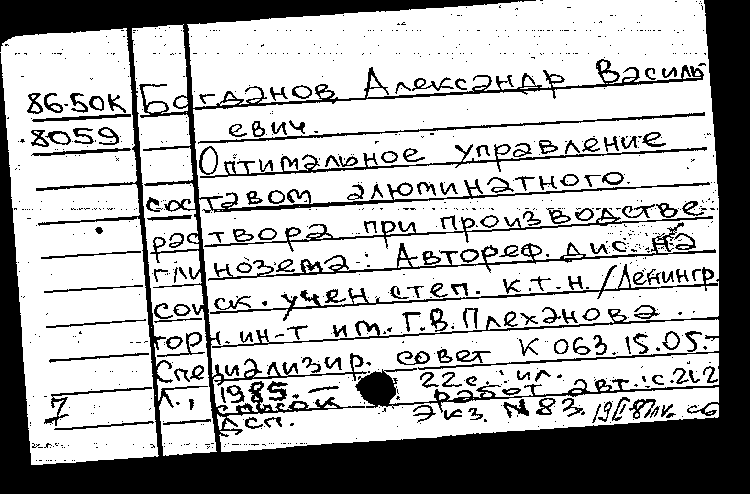 86-50К Богданов Александр Василь
8059 евич.
Оптимальное управление
составом алюминатного
раствора при производстве
глинозема: Автореф. дис. на
соиск. учен. степ. к.т.н. / Ленингр.
горн. ин-т им. Г.В. Плеханова.
Специализир. совет К 063.15.05.-
Л., 1985. — 22 с.: ил.
7 список работ авт.: с. 21,2
Дсп. Экз. N 83.